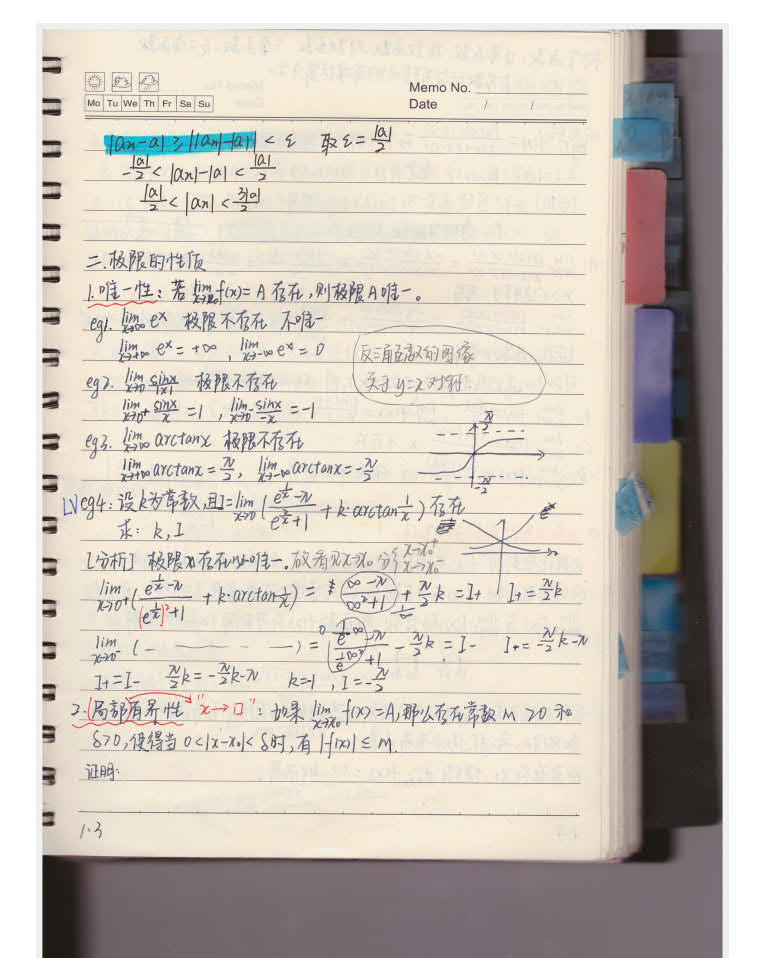 Memo No.
Mo Tu We Th Fr Sa Su
Date / /
|an-a| ≥ ||an|-|a|| < ε 取ε=|a|/2
-|a|/2 < |an|-|a| < |a|/2
|a|/2 < |an| < 3|a|/2
二.极限的性质
1.唯一性: 若 lim x→x0 f(x)=A 存在,则极限A唯一。
eg1. lim x→∞ e^x 极限不存在 不唯一
lim x→+∞ e^x=+∞ , lim x→-∞ e^x=0
反三角函数的图像
关于y=x对称.
eg2. lim x→0 sinx/|x| 极限不存在
lim x→0+ sinx/x =1 , lim x→0- sinx/-x =-1
eg3. lim x→∞ arctanx 极限不存在
lim x→+∞ arctanx=π/2, lim x→-∞ arctanx=-π/2
π/2
-π/2
LV eg4: 设k为常数,且I=lim x→0 (e^(1/x)-π / e^(2/x)+1 + k·arctan 1/x) 存在
求: k, I
e^x
[分析] 极限存在必唯一.故看见x→x0 分 x→x0+ x→x0-
lim x→0+ (e^(1/x)-π / (e^(1/x))²+1 + k·arctan 1/x) = ∞-π / ∞²+1 + π/2 k = I+ I+=π/2 k
1/∞
lim x→0- (- - - - -) = 0 1/e^∞ -π / 1/e^∞² +1 - π/2 k = I- I+=-π/2 k-π
I+=I- π/2 k=-π/2 k-π k=-1 , I=-π/2
2.局部有界性 "x→□": 如果 lim x→x0 f(x)=A,那么存在常数 M>0 和
δ>0,使得当 0<|x-x0|<δ时,有 |f(x)|≤M.
证明:
1.3